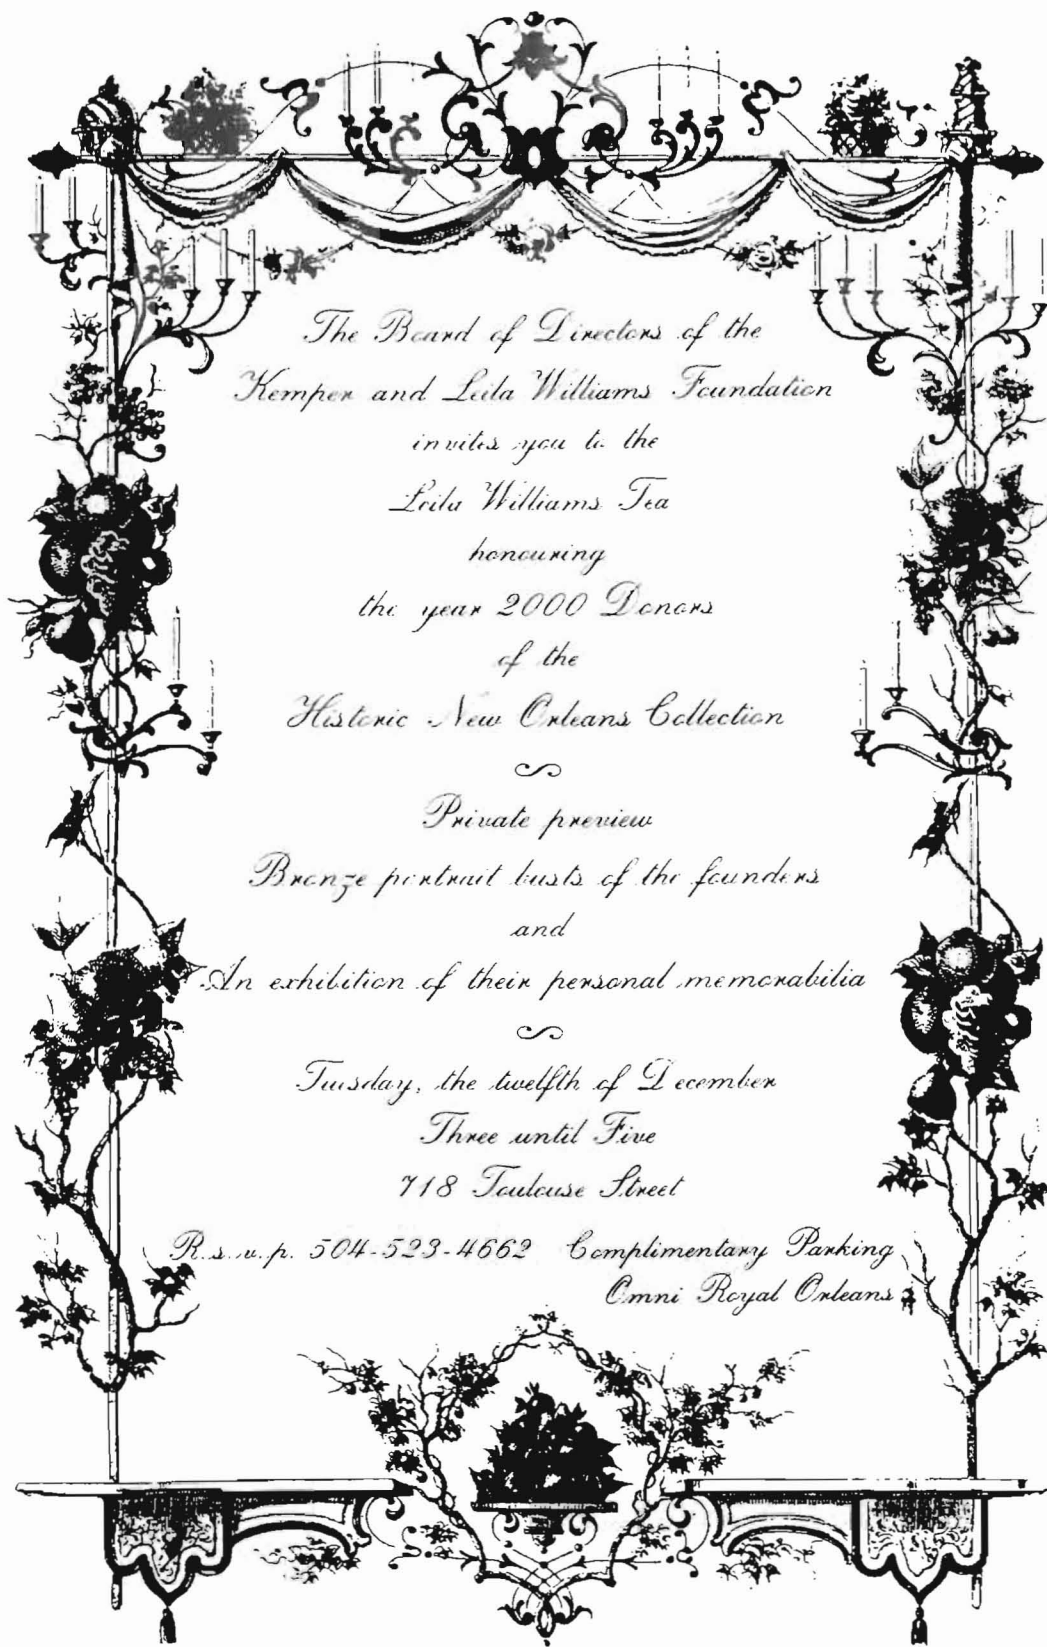 The Board of Directors of the
Kemper and Leila Williams Foundation
invites you to the
Leila Williams Tea
honouring
the year 2000 Donors
of the
Historic New Orleans Collection
Private preview
Bronze portrait busts of the founders
and
An exhibition of their personal memorabilia
Tuesday, the twelfth of December
Three until Five
718 Toulouse Street
R.s.v.p. 504-523-4662 Complimentary Parking
Omni Royal Orleans